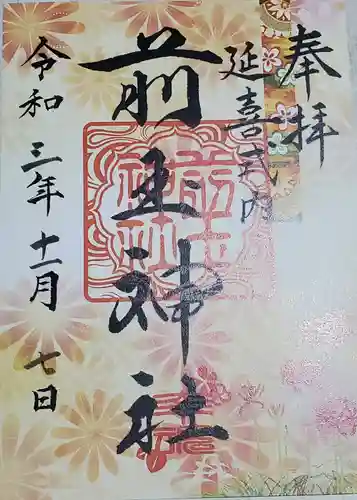 奉拝
延喜式内
前玉神社
令和三年十一月七日
前玉神社